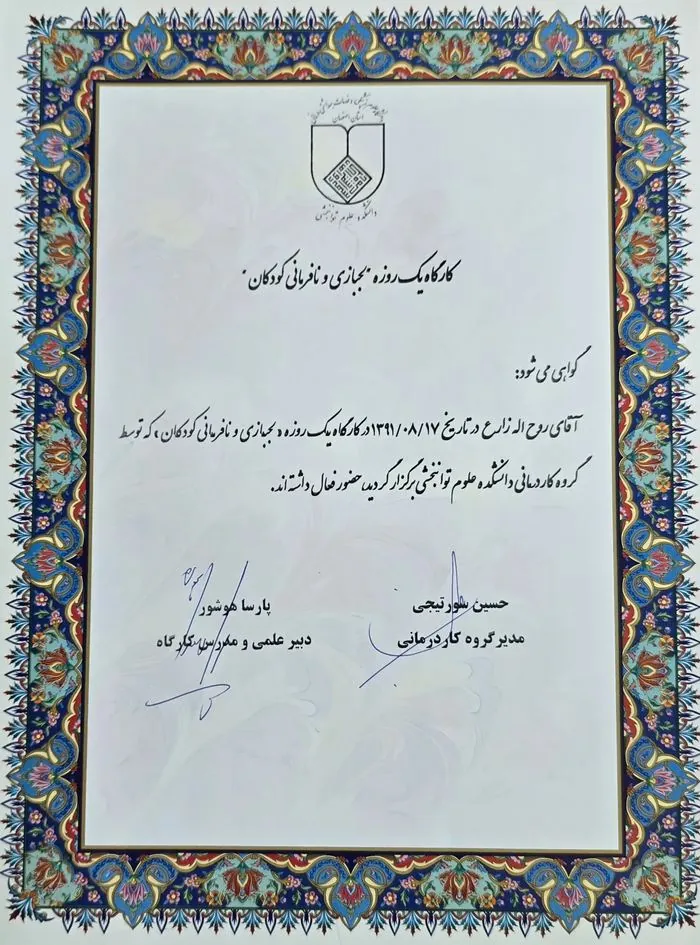 دانشگاه علوم پزشکی و خدمات بهداشتی درمانی
استان اصفهان
دانشکده علوم توانبخشی
کارگاه یک روزه "لجبازی و نافرمانی کودکان"
گواهی می شود:
آقای روح اله زارع در تاریخ ۱۳۹۱/۰۸/۱۷ در کارگاه یک روزه «لجبازی و نافرمانی کودکان» که توسط
گروه کاردرمانی دانشکده علوم توانبخشی برگزار گردید، حضور فعال داشته اند.
حسین سورتیجی
مدیر گروه کاردرمانی
پارسا هوشور
دبیر علمی و مدرس کارگاه